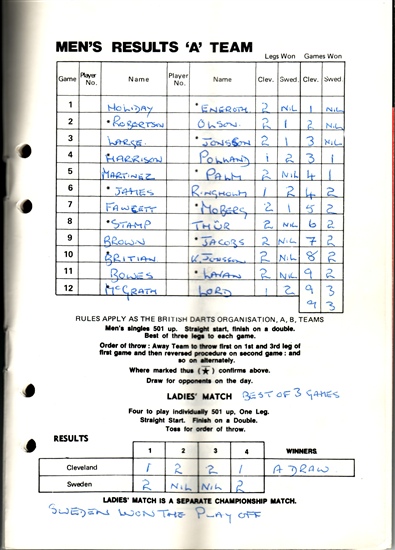 MEN'S RESULTS 'A' TEAM
Legs Won Games Won
Game Player No. Name Player No. Name Clev. Swed. Clev. Swed.
1 HOLIDAY * ENEROTH 2 NIL 1 NIL
2 * ROBERTSON OLSON 2 1 2 NIL
3 LARGE * JONSSON 2 1 3 NIL
4 HARRISON POLLAND 1 2 3 1
5 MARTINEZ * PALM 2 NIL 4 1
6 * JAMES RINGHOLM 1 2 4 2
7 FAWCETT * MOBERG 2 1 5 2
8 * STAMP THÜR 2 NIL 6 2
9 BROWN * JACOBS 2 NIL 7 2
10 * BRITIAN K. JONSSON 2 NIL 8 2
11 BOWES * LAVAN 2 NIL 9 2
12 * McGRATH LORD 1 2 9 3
9 3
RULES APPLY AS THE BRITISH DARTS ORGANISATION, A, B, TEAMS
Men's singles 501 up. Straight start, finish on a double.
Best of three legs to each game.
Order of throw : Away Team to throw first on 1st and 3rd leg of
first game and then reversed procedure on second game : and
so on alternately.
Where marked thus (★) confirms above.
Draw for opponents on the day.
LADIES' MATCH BEST OF 3 GAMES
Four to play individually 501 up, One Leg.
Straight Start. Finish on a Double.
Toss for order of throw.
RESULTS
1 2 3 4 WINNERS
Cleveland 1 2 2 1 A DRAW.
Sweden 2 NIL NIL 2
LADIES' MATCH IS A SEPARATE CHAMPIONSHIP MATCH.
SWEDEN WON THE PLAY OFF